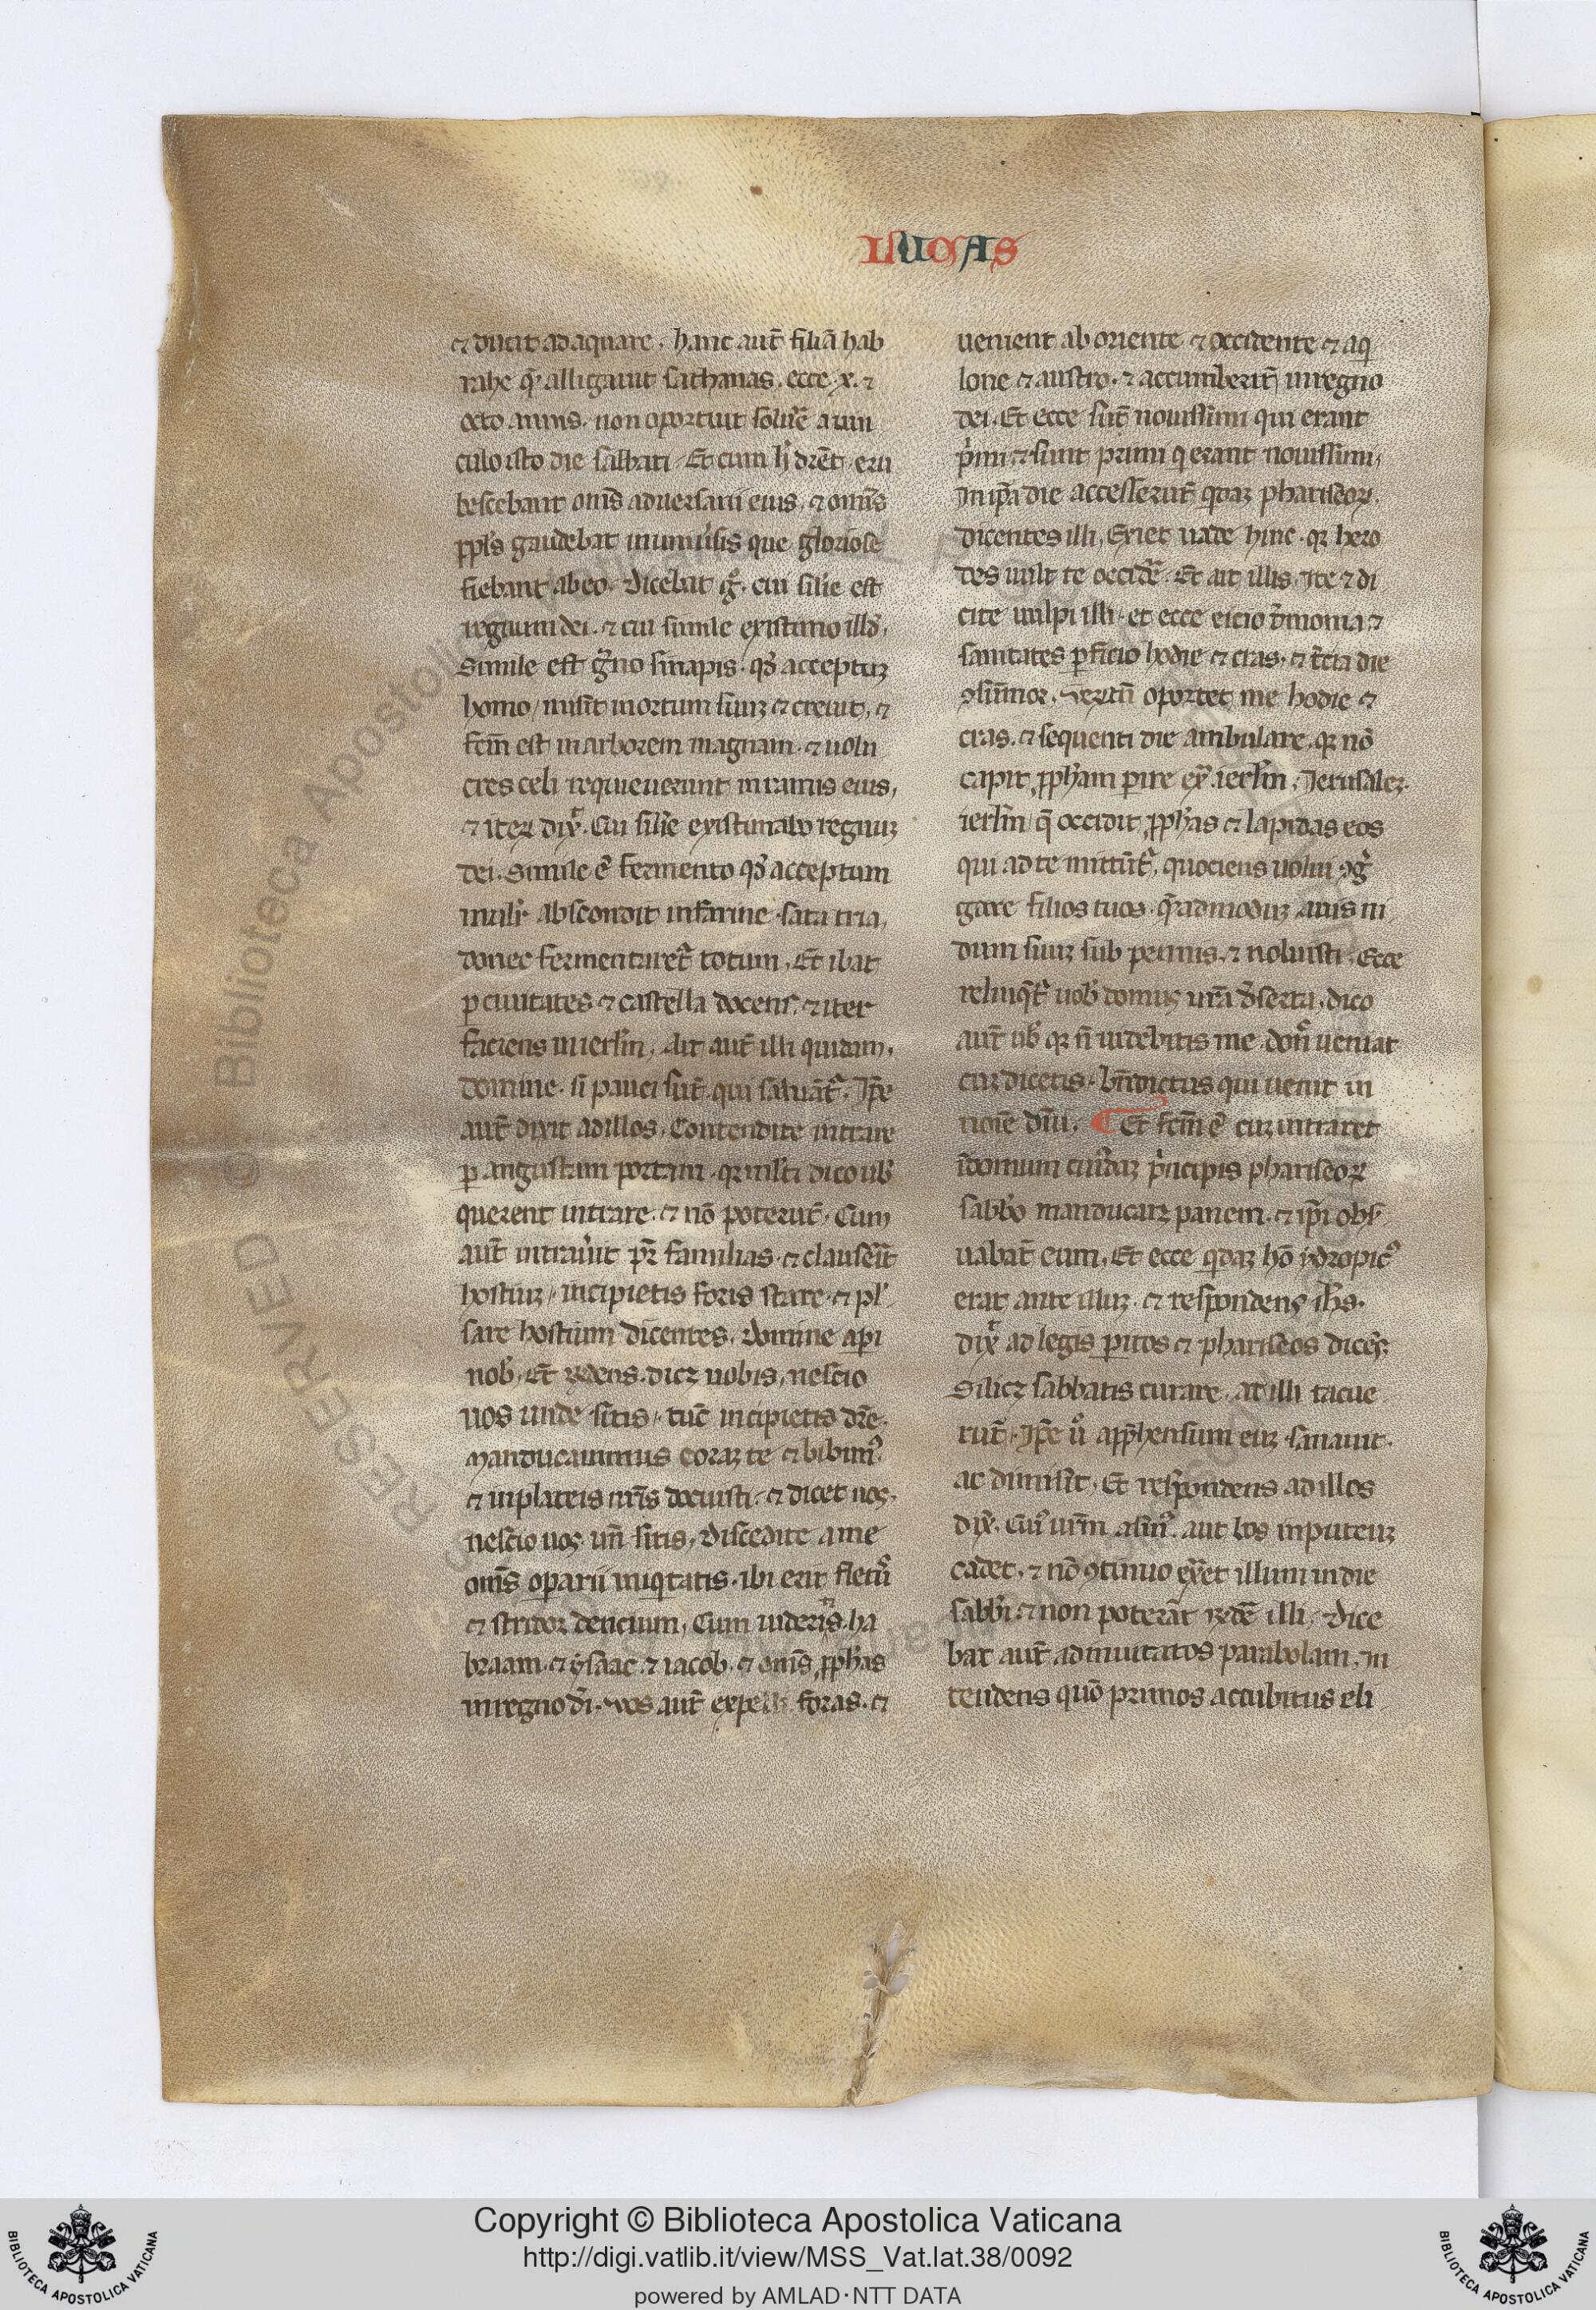 LUCAS
et ducit adaquare. hanc aut̄ filiā hab
rahe q̄ alligauit sathanas. ecce .x. et
octo annis. non oportuit solui᷒ē a uin
culo isto die sabbati. Et cum h᷒ dr̄et. eru
bescebant om̄s aduersarii eius. et omīs
pp̄ls gaudebat in uniu᷒sis que gloriose
fiebant ab eo. Dicebat gͦ. cui sil̄e est
regnum dei. et cui simile existimo illd᷒.
Simile est gͣno sinapis. qd᷒ acceptuꝫ
homo / misit in ortum suuꝫ et creuit. et
fc̄m est in arborem magnam. et uolu
cres celi requieuerunt in ramis eius.
et iteꝝ dix᷒. Cui sil̄e existimabo regnuꝫ
dei. Simile ē fermento qd᷒ acceptum
muli᷒ abscondit in farine sata tria.
donec fermentaret᷒ totum. Et ibat
ꝑ ciuitates et castella docens. et iter
faciens in ierl̄m. Ait aut̄ illi quidam.
domine. si pauci sūt qui saluāt᷒. Ip̄e
aut̄ dixit ad illos. Contendite intrare
ꝑ angustam portam. qꝛ multi dico uob᷒
querent intrare. et nō poterūt. Cum
aut̄ intrau᷒it pr̄ familias. et clause᷒it
hostiuꝫ. incipietis foris stare. et pul
sare hostium dicentes. domine aꝑi
nob᷒. Et rn̄dens. dicꝫ uobis. nescio
uos unde sitis. tūc incipietis dr̄e.
Manducauimus coraꝫ te et bibim᷒.
et in plateis nr̄is docuisti. et dicet uos.
nescio uos un̄ sitis. Discedite a me
om̄s oꝑarii iniqͥtatis. ibi erit flet᷒
et stridor dencium. Cum uideritis ha
braam. et ysaac et iacob. et om̄s ꝓph̄as
in regno dī. Vos aut̄ expelli foras. et
uenient ab oriente et occidente et aqͥ
lone et austro. et accumberūt in regno
dei. Et ecce sūt nouissimi qui erant
pͥmi et sunt primi qͥ erant nouissimi.
In ip̄a die accesserūt qͥdaꝫ phariseoꝝ.
dicentes illi. Exi et uade hinc. qꝛ hero
des uult te occid᷒e. Et ait illis. Ite et di
cite uulpi illi. et ecce eicio d᷒monia et
sanitates ꝑficio hodie et cras. et t᷒cia die
ꝯsūmor. Veꝝtn̄ oportet me hodie et
cras. et sequenti die ambulare. qꝛ nō
capit ꝓph̄am ꝑire ex᷒ ierl̄m. Jerusaleꝫ.
ierl̄m q̄ occidit ꝓph̄as et lapidas eos
qui ad te mittūt᷒. quociens uolui ꝯg᷒
gare filios tuos. q̄admoduꝫ auis ni
dum suuꝫ sub pennis. et noluisti. Ecce
relinqͥt᷒ uob᷒ domus ur̄a d᷒serta. dico
aut̄ ub᷒ qꝛ n̄ uidebitis me. don᷒ ueniat
cuꝫ dicetis. bn̄dictus qui uenit in
noīe dn̄i. Et fc̄m ē cuꝫ intraret
ī domum cui᷒daꝫ pͥncipis phariseoꝝ
sabb᷒o manducaꝝ panem. et ip̄i obs᷒
uabāt eum. Et ecce qͥdaꝫ hō ydropic᷒
erat ante illuꝫ. et respondens ih̄s.
dix᷒ ad legis ꝑitos et phariseos dicēs.
Si licꝫ sabbatis curare. at illi tacue
rūt. Ip̄e u᷒ͦ app̄hensum euꝫ sanauit.
ac dimisit. Et respondens ad illos
dix᷒. Cui᷒ ur̄m asin᷒. aut bos in puteuꝫ
cadet. et nō ꝯtinuo ex᷒het illum in die
sabb᷒i et non poterāt rn̄dē illi. Dice
bat aut̄ ad inuitatos parabolam. In
tendens quō primos accubitus eli
Copyright © Biblioteca Apostolica Vaticana
http://digi.vatlib.it/view/MSS_Vat.lat.38/0092
powered by AMLAD·NTT DATA
BIBLIOTECA APOSTOLICA VATICANA
BIBLIOTECA APOSTOLICA VATICANA